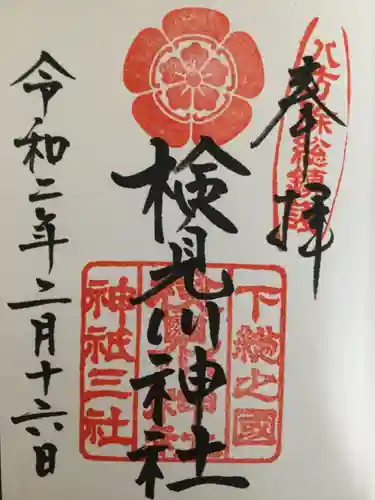 八方除総鎮護
奉拝
下総之國
検見川神社
検見川神社
神祇三社
令和二年二月十六日